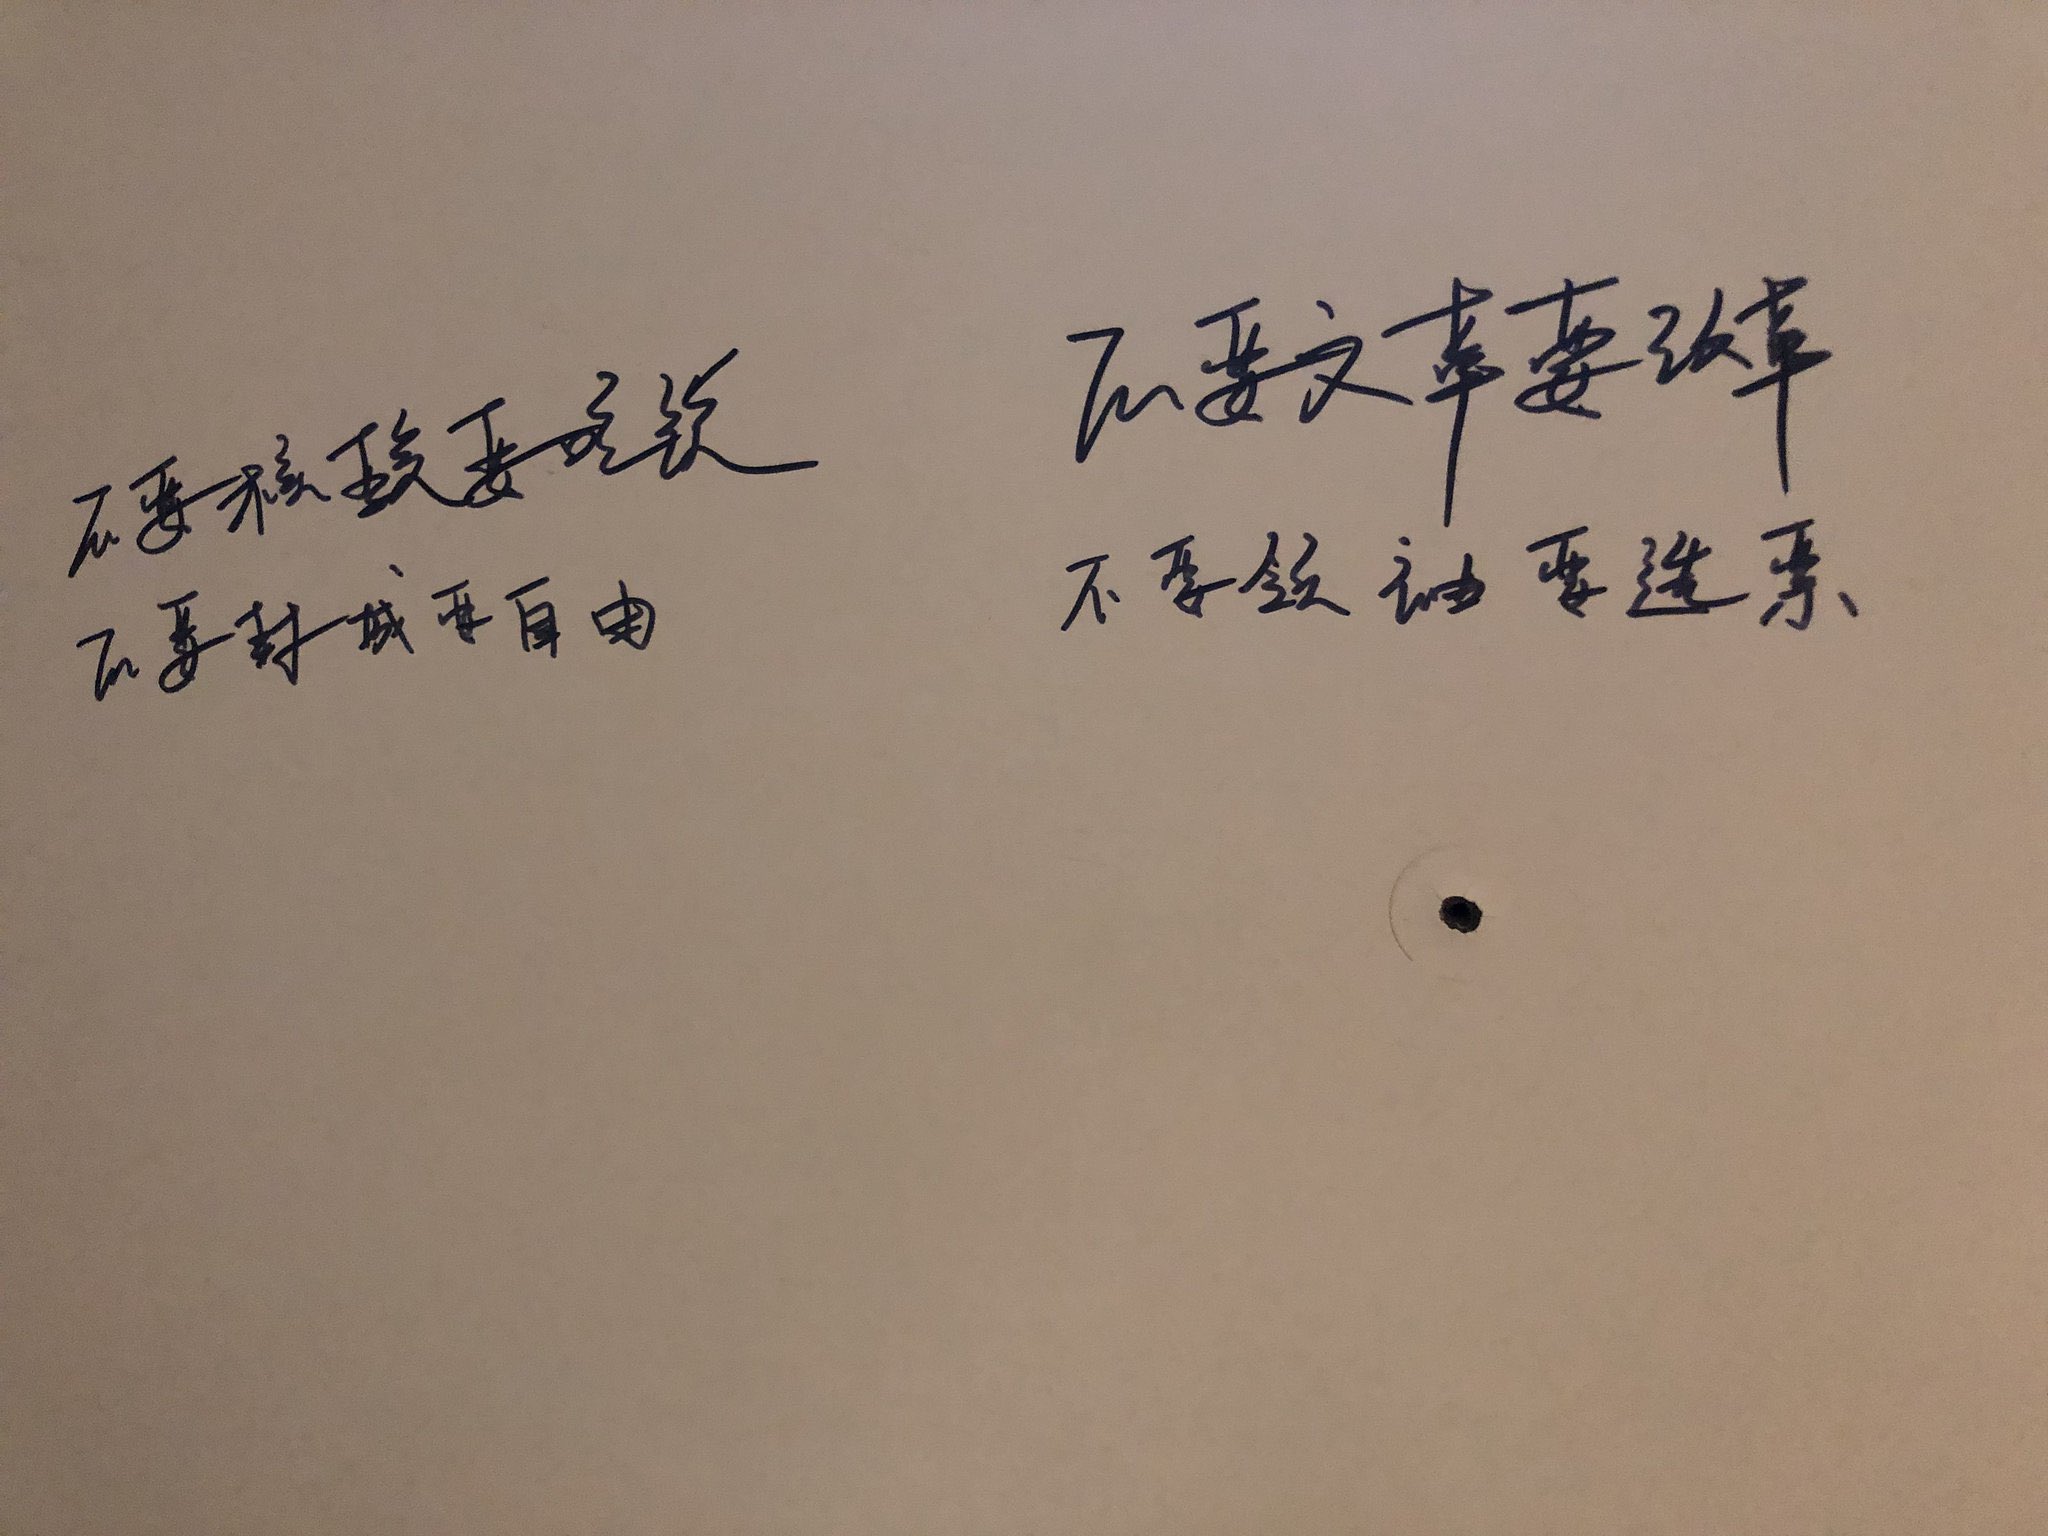 不要核酸要吃饭
不要封城要自由
不要文革要改革
不要领袖要选票